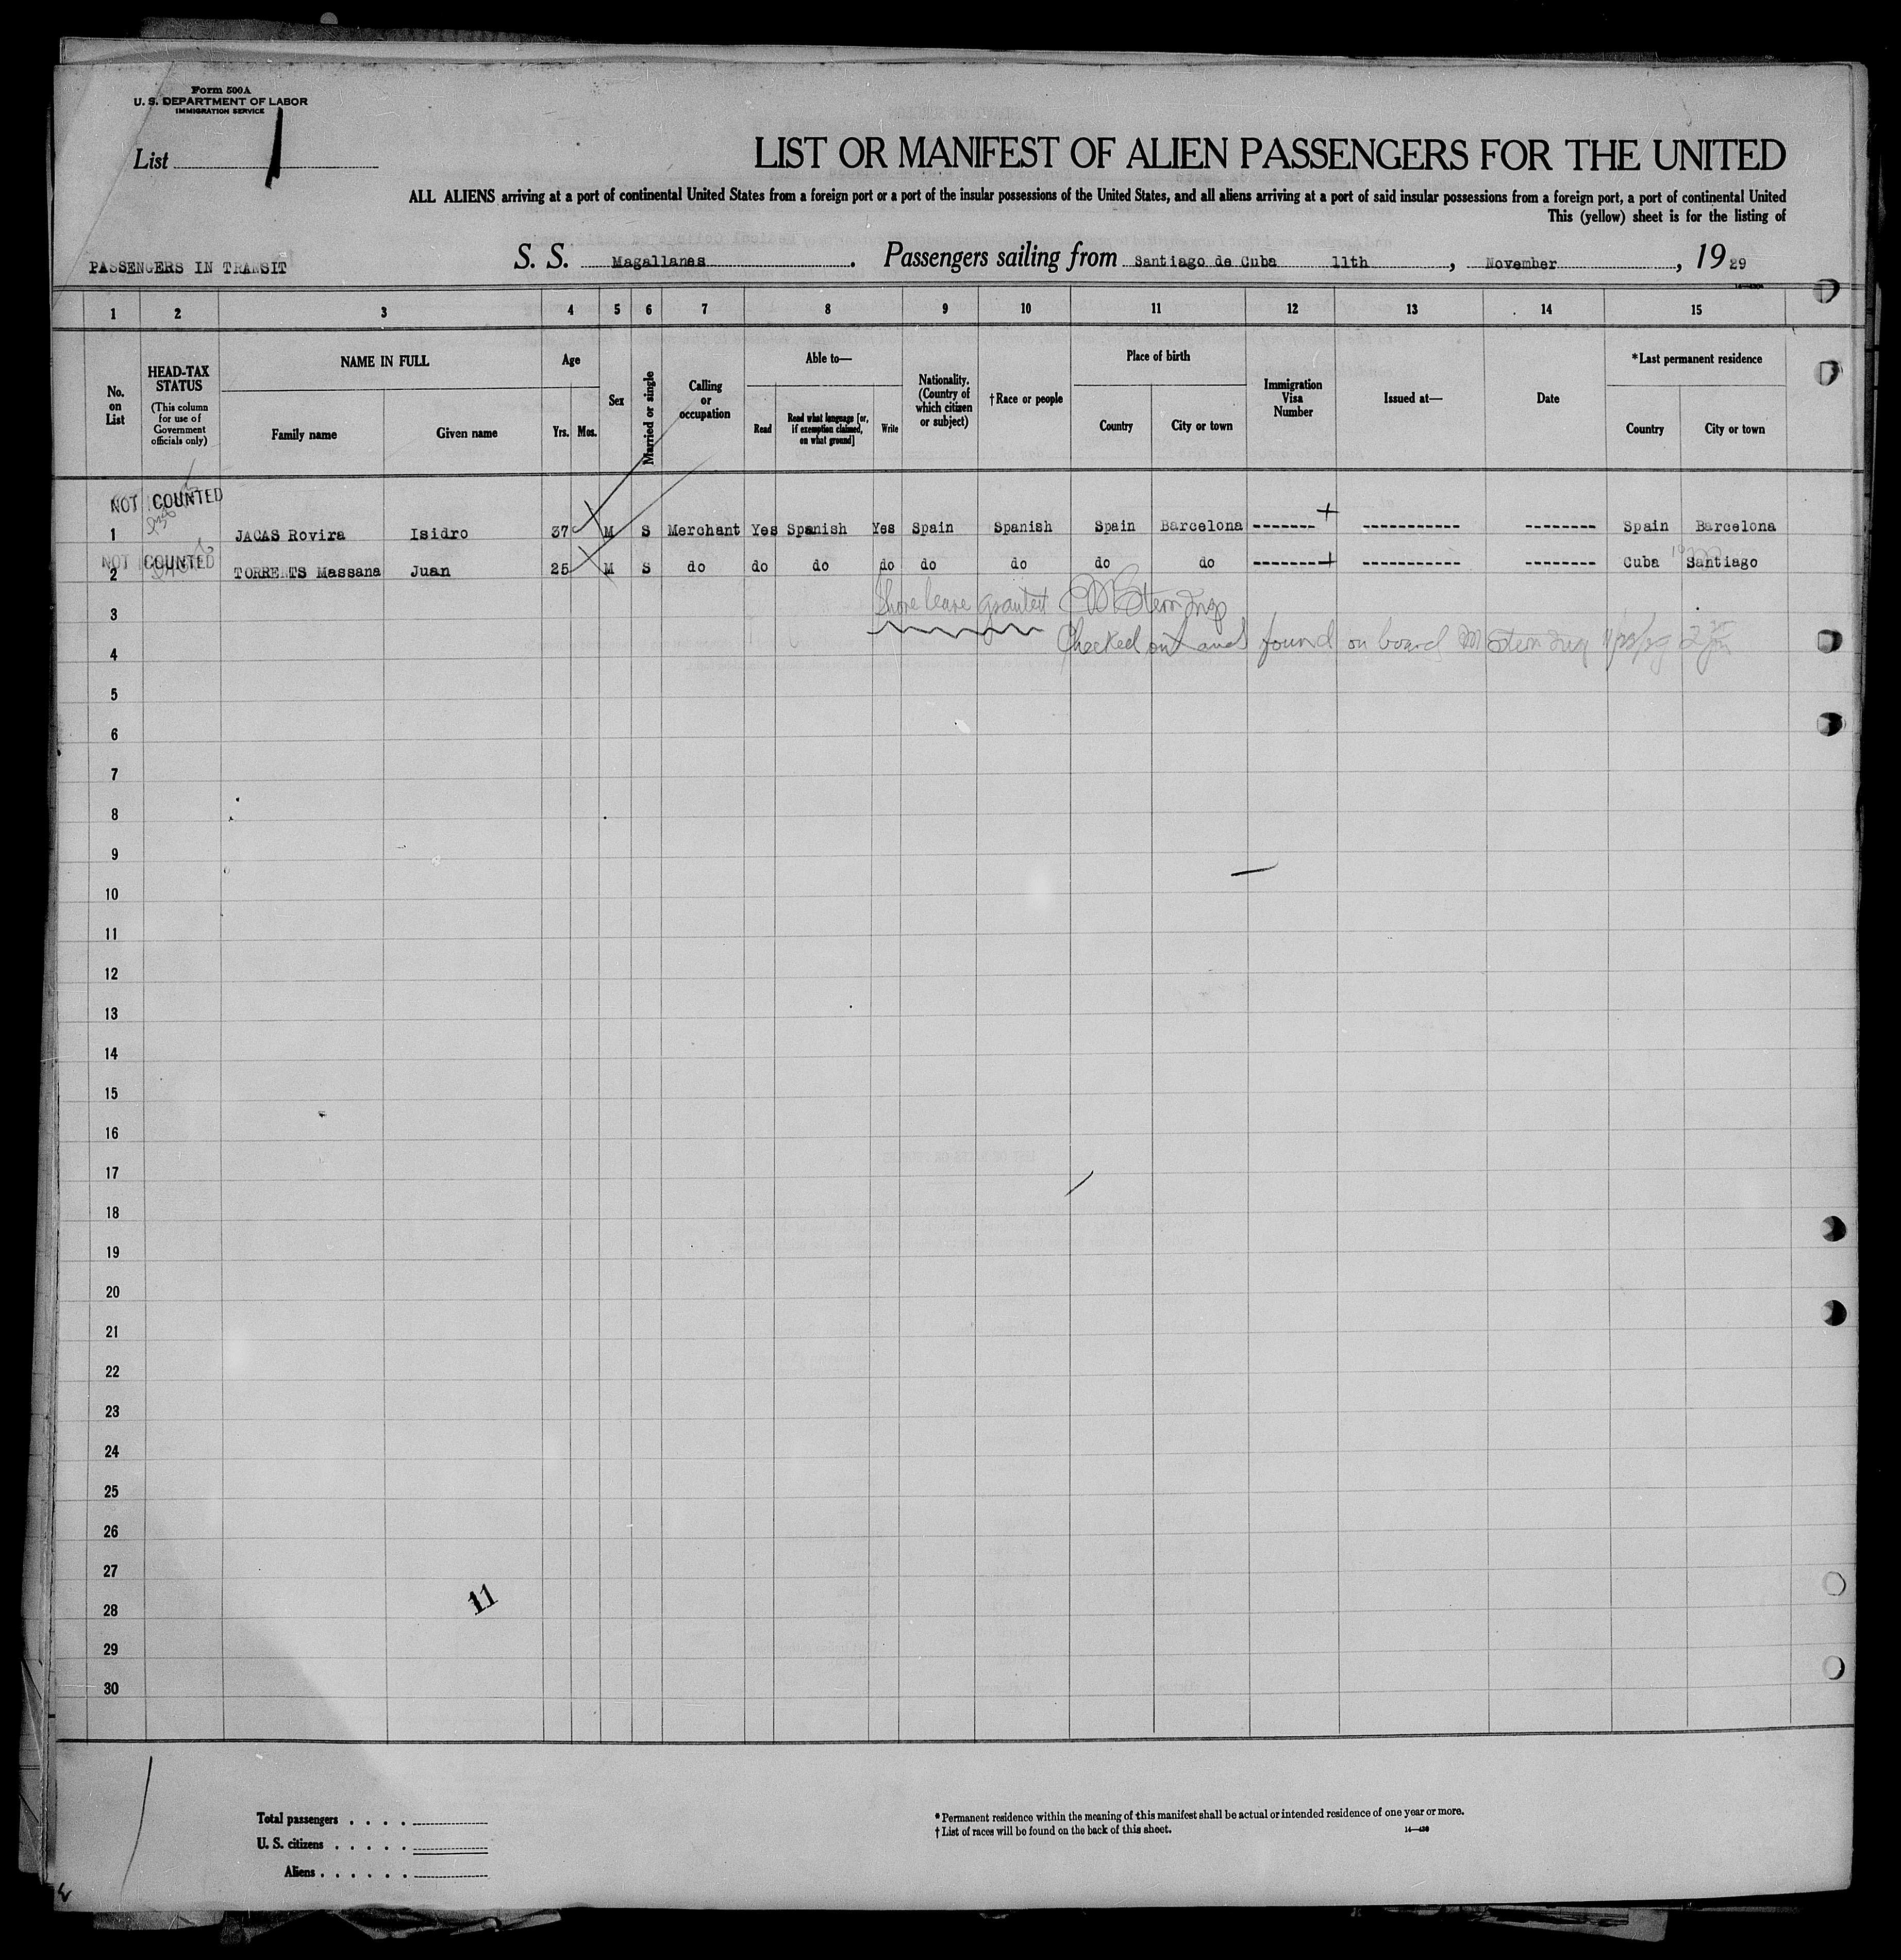 Form 500A
U. S. DEPARTMENT OF LABOR
IMMIGRATION SERVICE
List 1
LIST OR MANIFEST OF ALIEN PASSENGERS FOR THE UNITED
ALL ALIENS arriving at a port of continental United States from a foreign port or a port of the insular possessions of the United States, and all aliens arriving at a port of said insular possessions from a foreign port, a port of continental United
This (yellow) sheet is for the listing of
PASSENGERS IN TRANSIT S. S. Magallanes. Passengers sailing from Santiago de Cuba 11th, November, 19 29
1 2 3 4 5 6 7 8 9 10 11 12 13 14 15
No. on List
HEAD-TAX STATUS (This column for use of Government officials only)
NAME IN FULL
Family name Given name
Age
Yrs. Mos.
Sex
Married or single
Calling or occupation
Able to—
Read Read what language [or, if exemption claimed, on what ground] Write
Nationality. (Country of which citizen or subject)
†Race or people
Place of birth
Country City or town
Immigration Visa Number
Issued at—
Date
*Last permanent residence
Country City or town
NOT COUNTED
1 JACAS Rovira Isidro 37 M S Merchant Yes Spanish Yes Spain Spanish Spain Barcelona -------- ------------ --------- Spain Barcelona
NOT COUNTED
2 TORRENTS Massana Juan 25 M S do do do do do do do do --------- ------------ --------- Cuba Santiago
3 Shore leave granted Stern Insp
4 Checked out and found on board M Stern Insp
5
6
7
8
9
10
11
12
13
14
15
16
17
18
19
20
21
22
23
24
25
26
27
11
28
29
30
Total passengers . . . .
U. S. citizens . . . . .
Aliens . . . . . .
* Permanent residence within the meaning of this manifest shall be actual or intended residence of one year or more.
† List of races will be found on the back of this sheet.
14—430